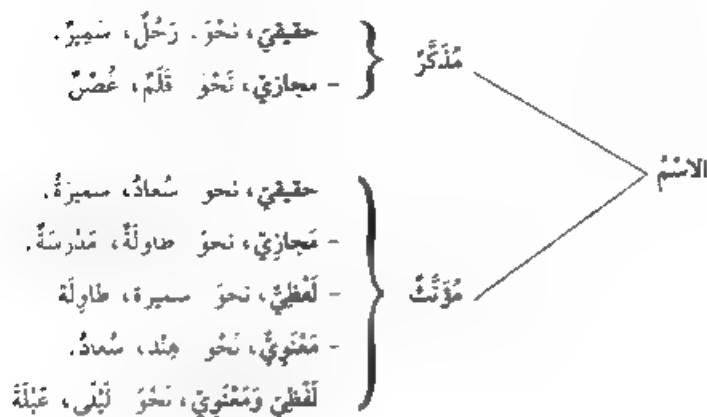 حقيقيّ، نحْوَ. رَجُلٌ، سَمِيرٌ.
- مجازيّ، نَحْوَ قَلَمٌ، غُصْنٌ
مُذَكَّرٌ
الاسْمُ
حقيقيّ، نحو سُعادُ، سميرَةُ.
- مَجازِيّ، نحوَ طاولَةٌ، مَدْرسَةٌ.
- لَفْظِيّ، نحوَ سميرة، طَاوِلَة
مُؤَنَّثٌ
- مَعْنَوِيٌّ، نَحْوَ هِنْد، سُعادُ.
لَفْظِيّ وَمَعْنَوِيّ، نَحْوَ لَيْلَى، عَبْلَةَ